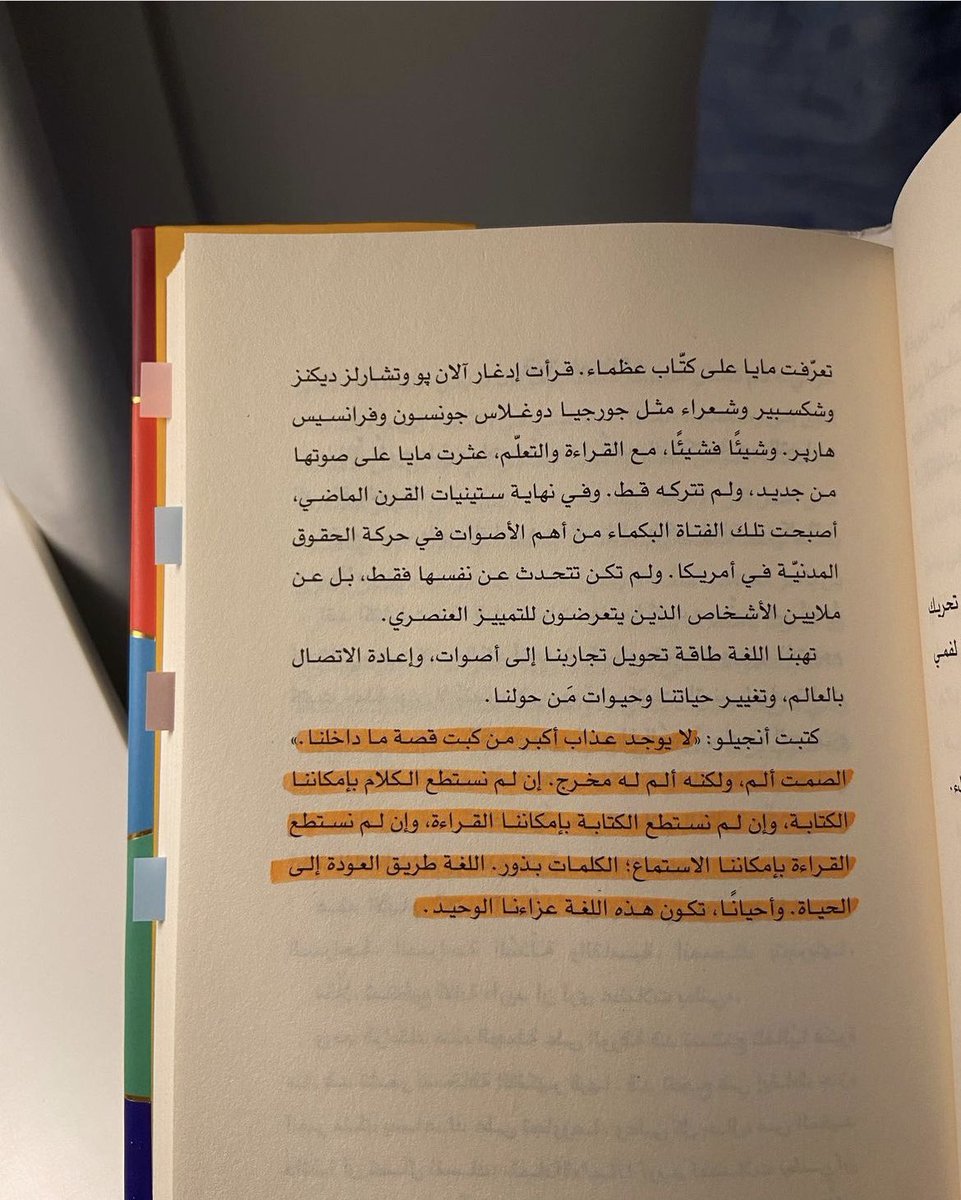 تعرّفت مايا على كتّاب عظماء. قرأت إدغار آلان پو وتشارلز ديكنز
وشكسبير وشعراء مثل جورجيا دوغلاس جونسون وفرانسيس
هارپر. وشيئًا فشيئًا، مع القراءة والتعلّم، عثرت مايا على صوتها
من جديد، ولم تتركه قط. وفي نهاية ستينيات القرن الماضي،
أصبحت تلك الفتاة البكماء من أهم الأصوات في حركة الحقوق
المدنيّة في أمريكا. ولم تكن تتحدث عن نفسها فقط، بل عن
ملايين الأشخاص الذين يتعرضون للتمييز العنصري.
تهبنا اللغة طاقة تحويل تجاربنا إلى أصوات، وإعادة الاتصال
بالعالم، وتغيير حياتنا وحيوات مَن حولنا.
كتبت أنجيلو: «لا يوجد عذاب أكبر من كبت قصة ما داخلنا.»
الصمت ألم، ولكنه ألم له مخرج. إن لم نستطع الكلام بإمكاننا
الكتابة، وإن لم نستطع الكتابة بإمكاننا القراءة، وإن لم نستطع
القراءة بإمكاننا الاستماع؛ الكلمات بذور. اللغة طريق العودة إلى
الحياة. وأحيانًا، تكون هذه اللغة عزاءنا الوحيد.
تحريك
لفمي